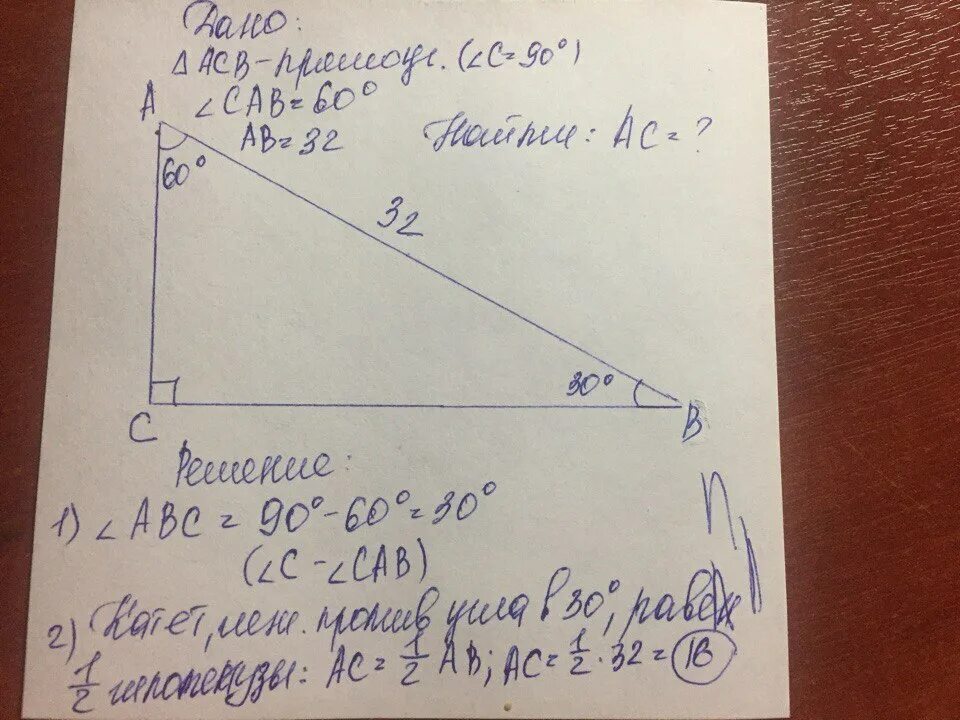 Дано:
△ACB-прямоуг. (∠C=90°)
A ∠CAB=60°
AB=32 Найти: AC=?
60°
32
30°
C B
Решение:
1) ∠ABC = 90°-60°=30°
(∠C-∠CAB)
2) Катет, леж. против угла в 30°, равен
1/2 гипотенузы: AC=1/2 AB; AC=1/2·32=16